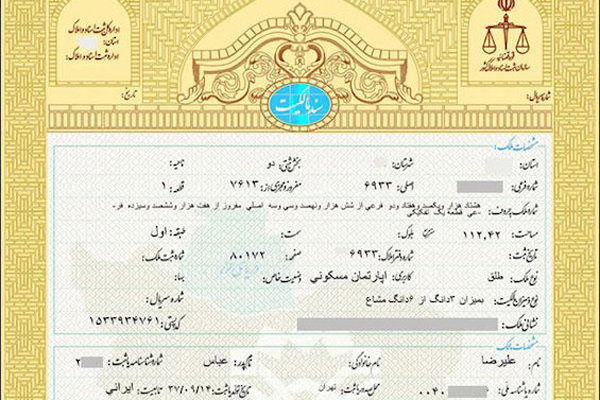 اداره کل ثبت اسناد و املاک
استان:
اداره ثبت اسناد و املاک:
تاریخ:
قوه قضائیه
سازمان ثبت اسناد و املاک کشور
شماره سریال:
سند مالکیت
مشخصات ملک
استان: شهرستان: بخش ثبتی: دو ناحیه:
شماره فرعی: اصلی: ۶۹۳۳ مفروز و مجزی از: ۷۶۱۳ قطعه: ۱
شماره ملک بحروف: هشتاد هزار ویکصد وهفتاد ودو فرعی از شش هزار ونهصد وسی وسه اصلی مفروز از هفت هزار وششصد وسیزده فر-
-عی قطعه یک تفکیکی
مساحت: ۱۱۲,۴۲ متر مربع بلوک: سمت: طبقه: اول
تاریخ ثبت: شماره دفتر املاک: ۶۹۳۳ صفحه: ۸۰۱۷۲ شماره ثبت ملک:
نوع ملک: طلق کاربری: آپارتمان مسکونی وضعیت خاص: بها:
نوع و میزان مالکیت: بمیزان ۳دانگ از ۶دانگ مشاع شماره سریال:
نشانی ملک: کد پستی: ۱۵۳۳۹۳۴۷۶۱
مشخصات مالک
نام: علیرضا نام خانوادگی: نام پدر: عباس شماره شناسنامه یا ثبت: ۲
شماره یا شناسه ملی: ۰۰۴۰ محل صدور یا ثبت: تهران تاریخ تولد یا ثبت: ۳۷/۰۹/۱۴ تابعیت: ایرانی